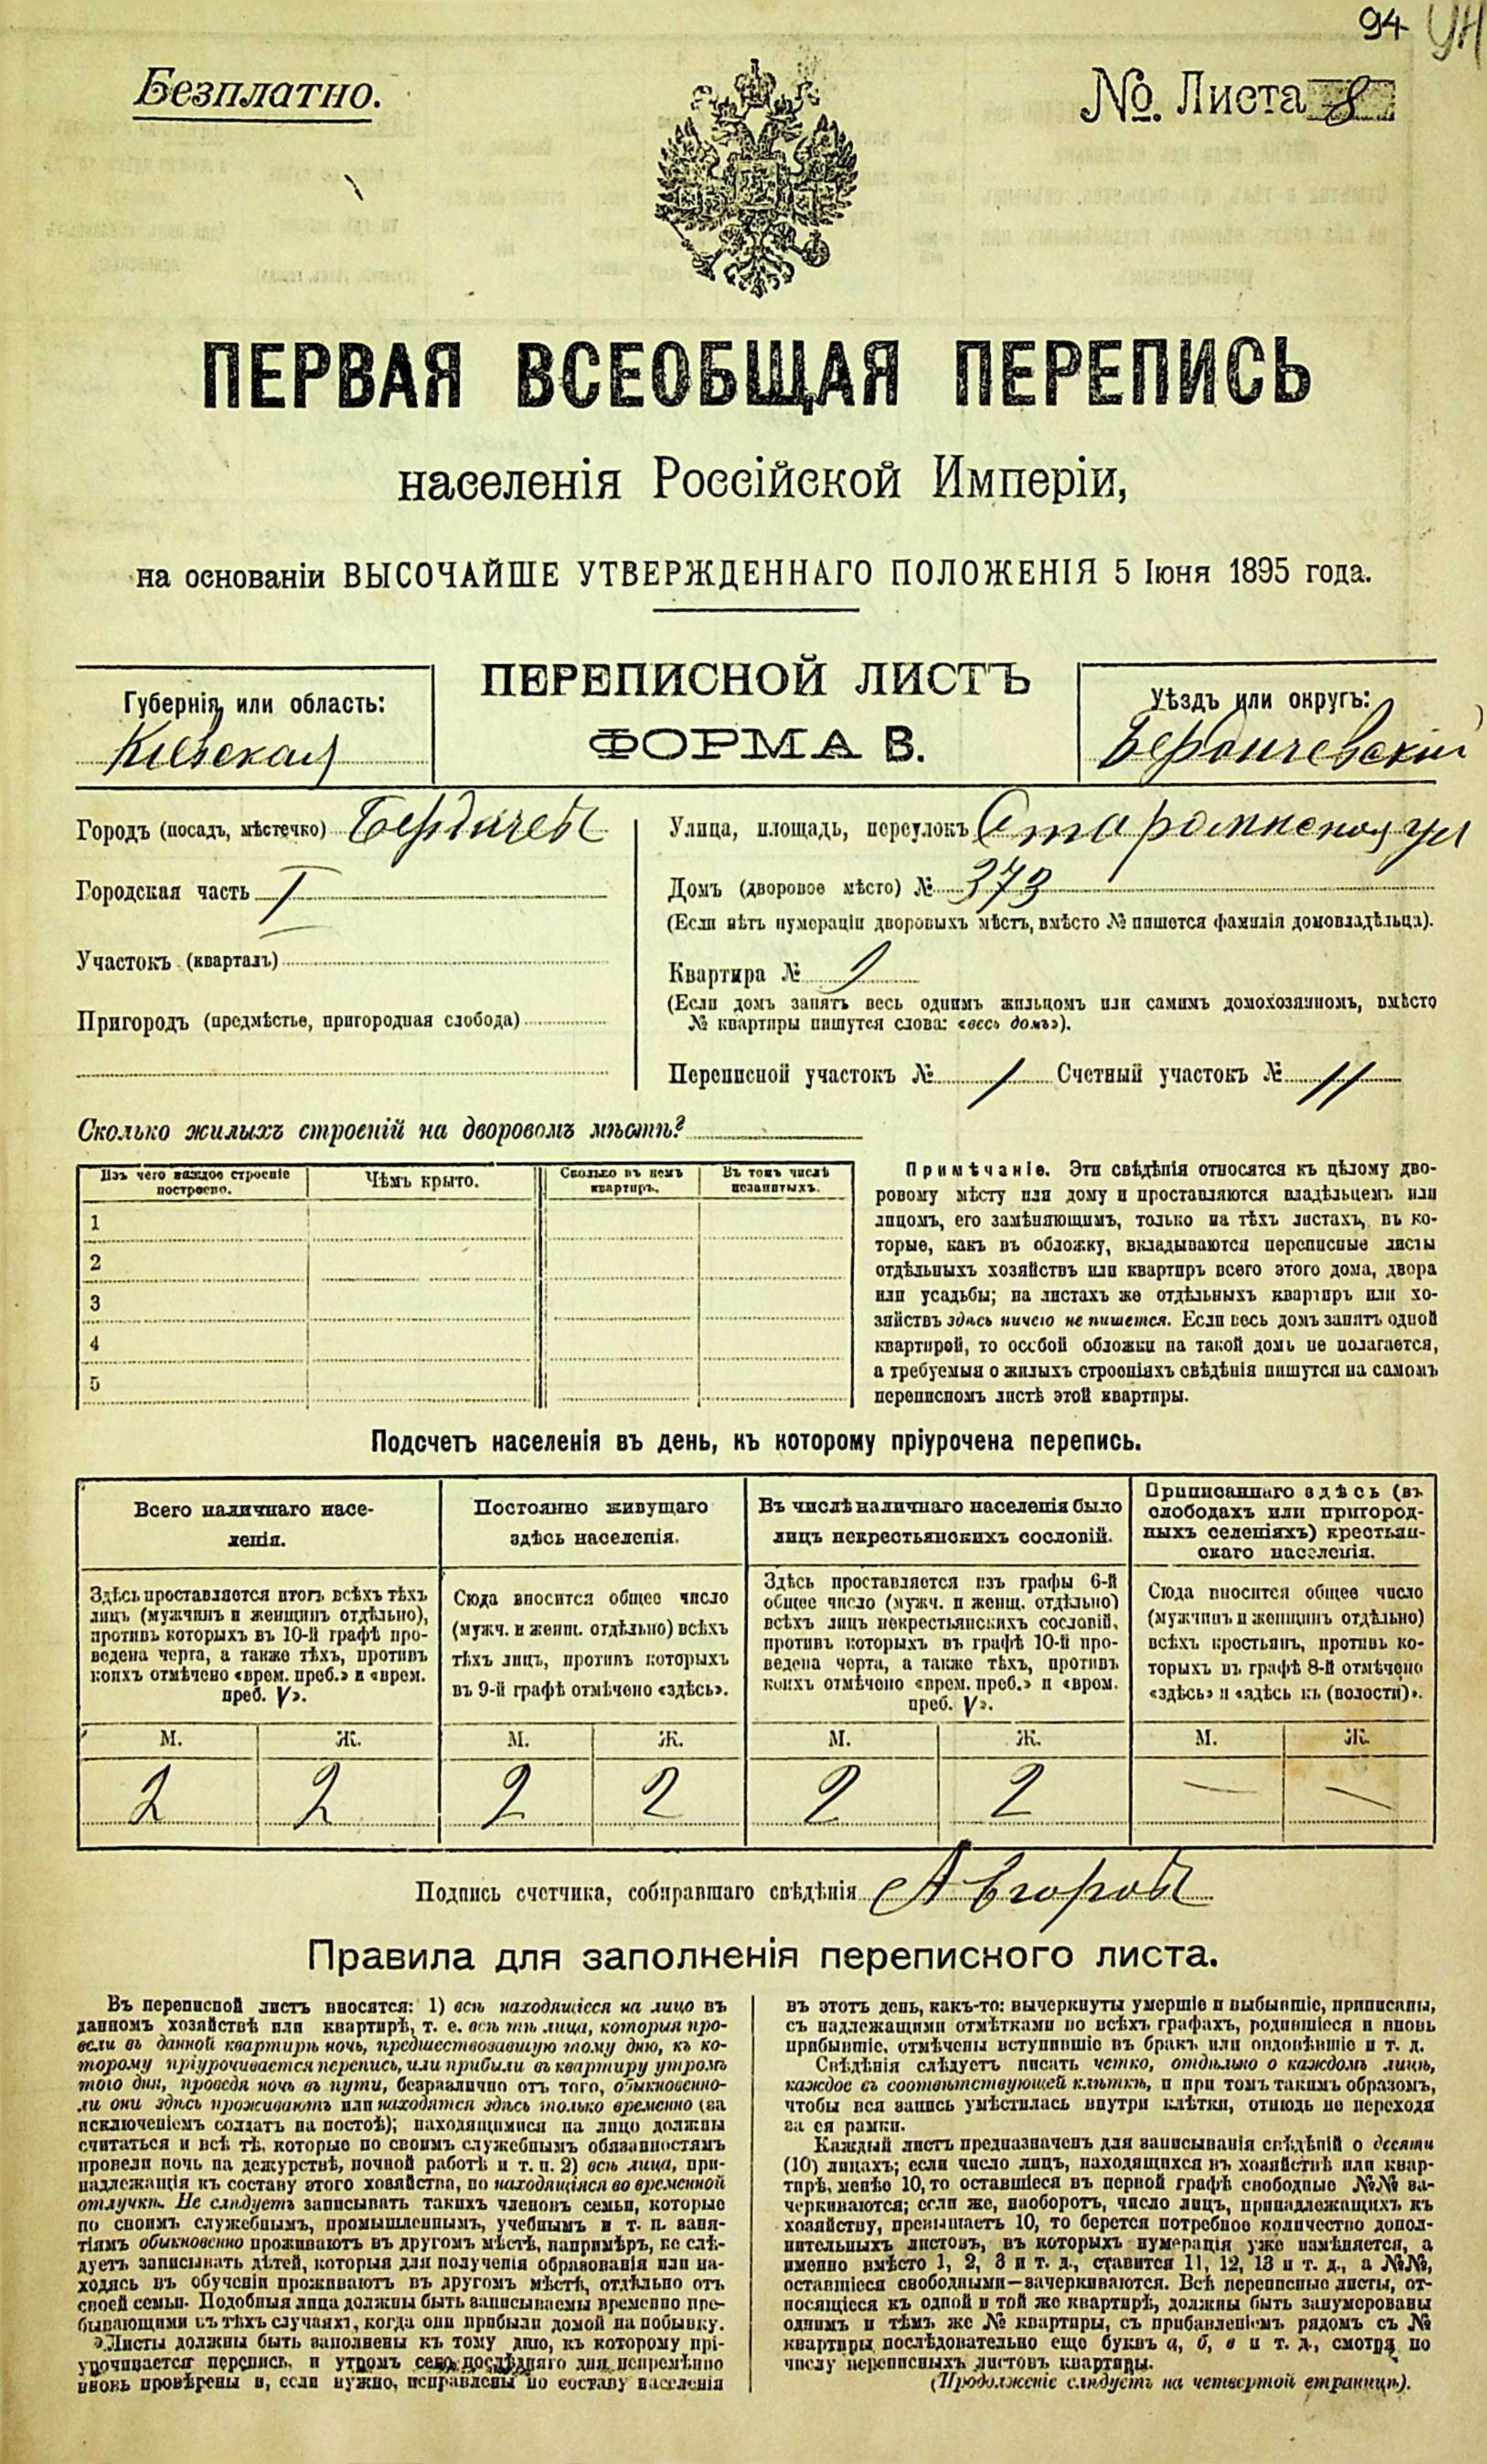 94 УН
Безплатно.
№. Листа 8
ПЕРВАЯ ВСЕОБЩАЯ ПЕРЕПИСЬ
населенія Россійской Имперіи,
на основаніи ВЫСОЧАЙШЕ УТВЕРЖДЕННАГО ПОЛОЖЕНІЯ 5 Іюня 1895 года.
ПЕРЕПИСНОЙ ЛИСТЪ
ФОРМА В.
Губернія или область:
Кіевская
Уѣздъ или округъ:
Бердичевскій
Городъ (посадъ, мѣстечко) Бердичевъ
Городская часть I
Участокъ (кварталъ)
Пригородъ (предмѣстье, пригородная слобода)
Улица, площадь, переулокъ ул
Домъ (дворовое мѣсто) № 373
(Если нѣтъ нумераціи дворовыхъ мѣстъ, вмѣсто № пишется фамилія домовладѣльца).
Квартира №
(Если домъ занятъ весь однимъ жильцомъ или самимъ домохозяиномъ, вмѣсто
№ квартиры пишутся слова: «весь домъ»).
Переписной участокъ № 1 Счетный участокъ № 11
Сколько жилыхъ строеній на дворовомъ мѣстѣ?
Изъ чего каждое строеніе
построено.
Чѣмъ крыто.
Сколько въ немъ
квартиръ.
Въ томъ числѣ
незанятыхъ.
1
2
3
4
5
Примѣчаніе. Эти свѣдѣнія относятся къ цѣлому дво-
ровому мѣсту или дому и проставляются владѣльцемъ или
лицомъ, его замѣняющимъ, только на тѣхъ листахъ, въ ко-
торые, какъ въ обложку, вкладываются переписные листы
отдѣльныхъ хозяйствъ или квартиръ всего этого дома, двора
или усадьбы; на листахъ же отдѣльныхъ квартиръ или хо-
зяйствъ здѣсь ничего не пишется. Если весь домъ занятъ одной
квартирой, то особой обложки на такой домъ не полагается,
а требуемыя о жилыхъ строеніяхъ свѣдѣнія пишутся на самомъ
переписномъ листѣ этой квартиры.
Подсчетъ населенія въ день, къ которому пріурочена перепись.
Всего наличнаго насе-
ленія.
Постоянно живущаго
здѣсь населенія.
Въ числѣ наличнаго населенія было
лицъ некрестьянскихъ сословій.
Приписаннаго здѣсь (въ
слободахъ или пригород-
ныхъ селеніяхъ) крестьян-
скаго населенія.
Здѣсь проставляется итогъ всѣхъ тѣхъ
лицъ (мужчинъ и женщинъ отдѣльно),
противъ которыхъ въ 10-й графѣ про-
ведена черта, а также тѣхъ, противъ
коихъ отмѣчено «врем. преб.» и «врем.
преб. V».
Сюда вносится общее число
(мужч. и женщ. отдѣльно) всѣхъ
тѣхъ лицъ, противъ которыхъ
въ 9-й графѣ отмѣчено «здѣсь».
Здѣсь проставляется изъ графы 6-й
общее число (мужч. и женщ. отдѣльно)
всѣхъ лицъ некрестьянскихъ сословій,
противъ которыхъ въ графѣ 10-й про-
ведена черта, а также тѣхъ, противъ
коихъ отмѣчено «врем. преб.» и «врем.
преб. V».
Сюда вносится общее число
(мужчинъ и женщинъ отдѣльно)
всѣхъ крестьянъ, противъ ко-
торыхъ въ графѣ 8-й отмѣчено
«здѣсь» и «здѣсь къ (волости)».
М. Ж. М. Ж. М. Ж. М. Ж.
2 2 2 2 2 2 — —
Подпись счетчика, собиравшаго свѣдѣнія
Правила для заполненія переписного листа.
Въ переписной листъ вносятся: 1) всѣ находящіеся на лицо въ
данномъ хозяйствѣ или квартирѣ, т. е. всѣ тѣ лица, которыя про-
вели въ данной квартирѣ ночь, предшествовавшую тому дню, къ ко-
торому пріурочивается перепись, или прибыли въ квартиру утромъ
того дня, проведя ночь въ пути, безразлично отъ того, обыкновенно-
ли они здѣсь проживаютъ или находятся здѣсь только временно (за
исключеніемъ солдатъ на постоѣ); находящимися на лицо должны
считаться и всѣ тѣ, которые по своимъ служебнымъ обязанностямъ
провели ночь на дежурствѣ, ночной работѣ и т. п. 2) всѣ лица, при-
надлежащія къ составу этого хозяйства, но находящіяся во временной
отлучкѣ. Не слѣдуетъ записывать такихъ членовъ семьи, которые
по своимъ служебнымъ, промышленнымъ, учебнымъ и т. п. заня-
тіямъ обыкновенно проживаютъ въ другомъ мѣстѣ, напримѣръ, не слѣ-
дуетъ записывать дѣтей, которыя для полученія образованія или на-
ходясь въ обученіи проживаютъ въ другомъ мѣстѣ, отдѣльно отъ
своей семьи. Подобныя лица должны быть записываемы временно пре-
бывающими въ тѣхъ случаяхъ, когда они прибыли домой на побывку.
Листы должны быть заполнены къ тому дню, къ которому прі-
урочивается перепись, и утромъ сего послѣдняго дня непремѣнно
вновь провѣрены и, если нужно, исправлены по составу населенія
въ этотъ день, какъ-то: вычеркнуты умершіе и выбывшіе, приписаны,
съ надлежащими отмѣтками во всѣхъ графахъ, родившіеся и вновь
прибывшіе, отмѣчены вступившіе въ бракъ или овдовѣвшіе и т. д.
Свѣдѣнія слѣдуетъ писать четко, отдѣльно о каждомъ лицѣ,
каждое въ соотвѣтствующей клѣткѣ, и при томъ такимъ образомъ,
чтобы вся запись умѣстилась внутри клѣтки, отнюдь не переходя
за ея рамки.
Каждый листъ предназначенъ для записыванія свѣдѣній о десяти
(10) лицахъ; если число лицъ, находящихся въ хозяйствѣ или квар-
тирѣ, менѣе 10, то оставшіеся въ первой графѣ свободные №№ за-
черкиваются; если же, наоборотъ, число лицъ, принадлежащихъ къ
хозяйству, превышаетъ 10, то берется потребное количество допол-
нительныхъ листовъ, въ которыхъ нумерація уже измѣняется, а
именно вмѣсто 1, 2, 3 и т. д., ставится 11, 12, 13 и т. д., а №№,
оставшіеся свободными—зачеркиваются. Всѣ переписные листы, от-
носящіеся къ одной и той же квартирѣ, должны быть занумерованы
однимъ и тѣмъ же № квартиры, съ прибавленіемъ рядомъ съ №
квартиры последовательно еще буквъ а, б, в и т. д., смотря по
числу переписныхъ листовъ квартиры.
(Продолженіе слѣдуетъ на четвертой страницѣ).